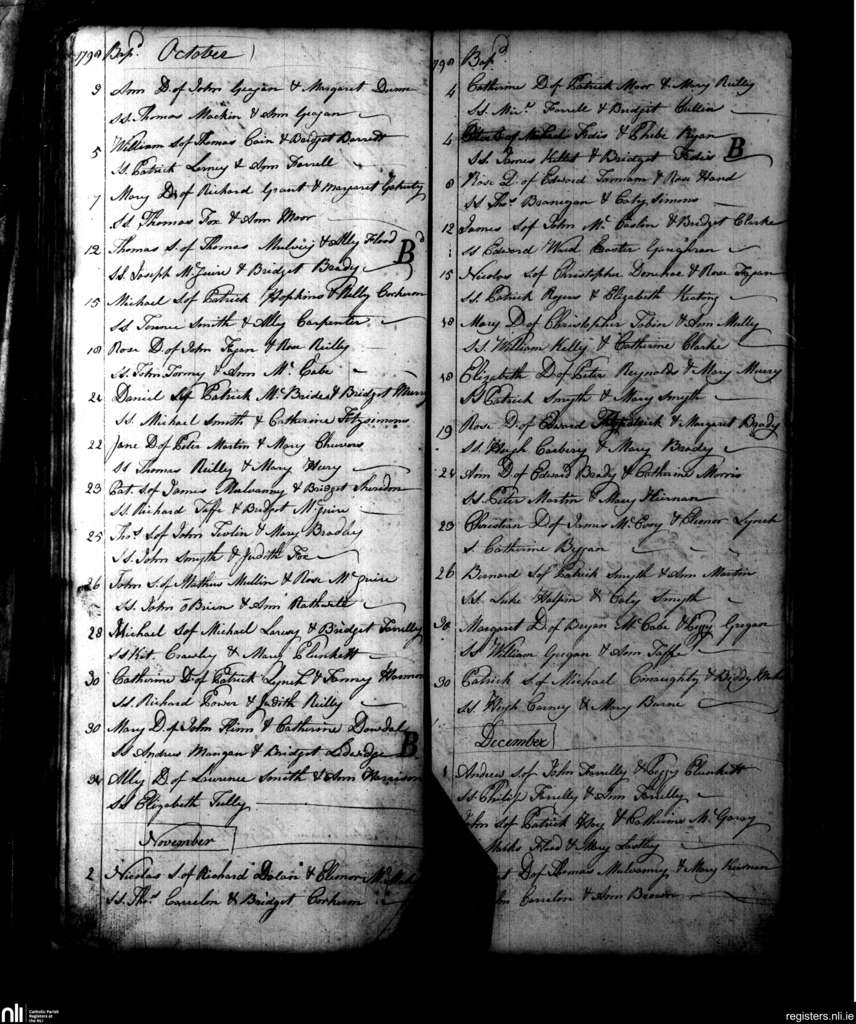 1790 Bapd October
3 Ann D. of John Geagan & Margaret Dunn
SS. Thomas Mackin & Ann Geagan
5 William S of Thomas Cain & Bridget Barrett
SS. Patrick Lerney & Ann Farrell
7 Mary D. of Richard Grant & Margaret
SS. Thomas Fox & Ann Moor
12 Thomas S. of Thomas & Ally Flood Bd
SS. Joseph McGuire & Bridget Brady
15 Michael S of Patrick Hopkins & Nelly Corkeron
SS Terence Smith & Ally Carpenter
18 Rose D. of John Fegan & Rose Reilly
SS. John Tormey & Ann McCabe
21 Daniel S of Patrick McBride & Bridget Murry
SS. Michael Smith & Catherine Fitzsimons
22 Jane D of Peter Martin & Mary
SS Thomas Reilly & Mary
23 Pat. S of James Mulvanny & Bridget Sheridon
SS. Richard Taffe & Bridget McGuire
25 Thos S of John & Mary Bradley
SS. John Smyth & Judith Fox
26 John S. of Mathus Mullin & Rose McGuire
SS. John O Brien & Ann Rathwell
28 Michael S of Michael & Bridget Farrelly
SS Kit. Crawley & Mary Plunkett
30 Catherine D of Patrick Lynch & Fanny
SS. Richard Power & Judith Reilly
30 Mary D. of John & Catherine Dowdal
SS Andrew Mangan & Bridget Ledwidge B
Ally D of Lawrence Smith & Ann
SS Elizabeth Tully
November
2 Nicolas S of Richard Dolan & Elenor
SS. Thos Carrelon & Bridget Corkeron
1790 Bapd
4 Catherine D of Patrick Moor & Mary Reilly
SS. Micl Farrell & Bridget Cullin
4 Fedis & Phebe Ryan
SS James & Bridget Fedis B
8 Rose D of Edward & Rose Hand
SS Thos Branegan & Caty Simons
12 James S of John McCaslin & Bridget Clarke
SS Edward Ward
15 Nicolas S of Christopher Donohoe & Rose Fegan
SS Patrick Rogers & Elizabeth Keating
18 Mary D of Christopher Tobin & Ann Mully
SS. William Kelly & Catherine Clarke
18 Elizabeth D of Peter Reynolds & Mary Murry
SS Patrick Smyth & Mary Smyth
19 Rose D of Edward Fitzpatrick & Margaret Brady
SS. Hugh Carbery & Mary Brady
24 Ann D of Edward Brady & Catherine Morris
SS Peter Martin & Mary Hiernan
23 Christian D of James McEvoy & Elenor Lynch
S. Catherine
26 Bernard S of Patrick Smyth & Ann Martin
SS. Luke Halpin & Caty Smyth
30 Margaret D of Bryan McCabe & Geegan
SS William Geegan & Ann Taffe
30 Patrick S of Michael Conaughty & Biddy
SS. Hugh Carney & Mary Burne
December
1 Andrew S of John Farrelly & Plunkett
SS Philip Farrelly & Ann Farrelly
John S of Patrick & Catherine McGarry
Flood & Mary
D of Thomas Mulvanny & Mary Kiernan
Carrelon & Ann Brown
nli Catholic Parish
Registers at
the NLI
registers.nli.ie